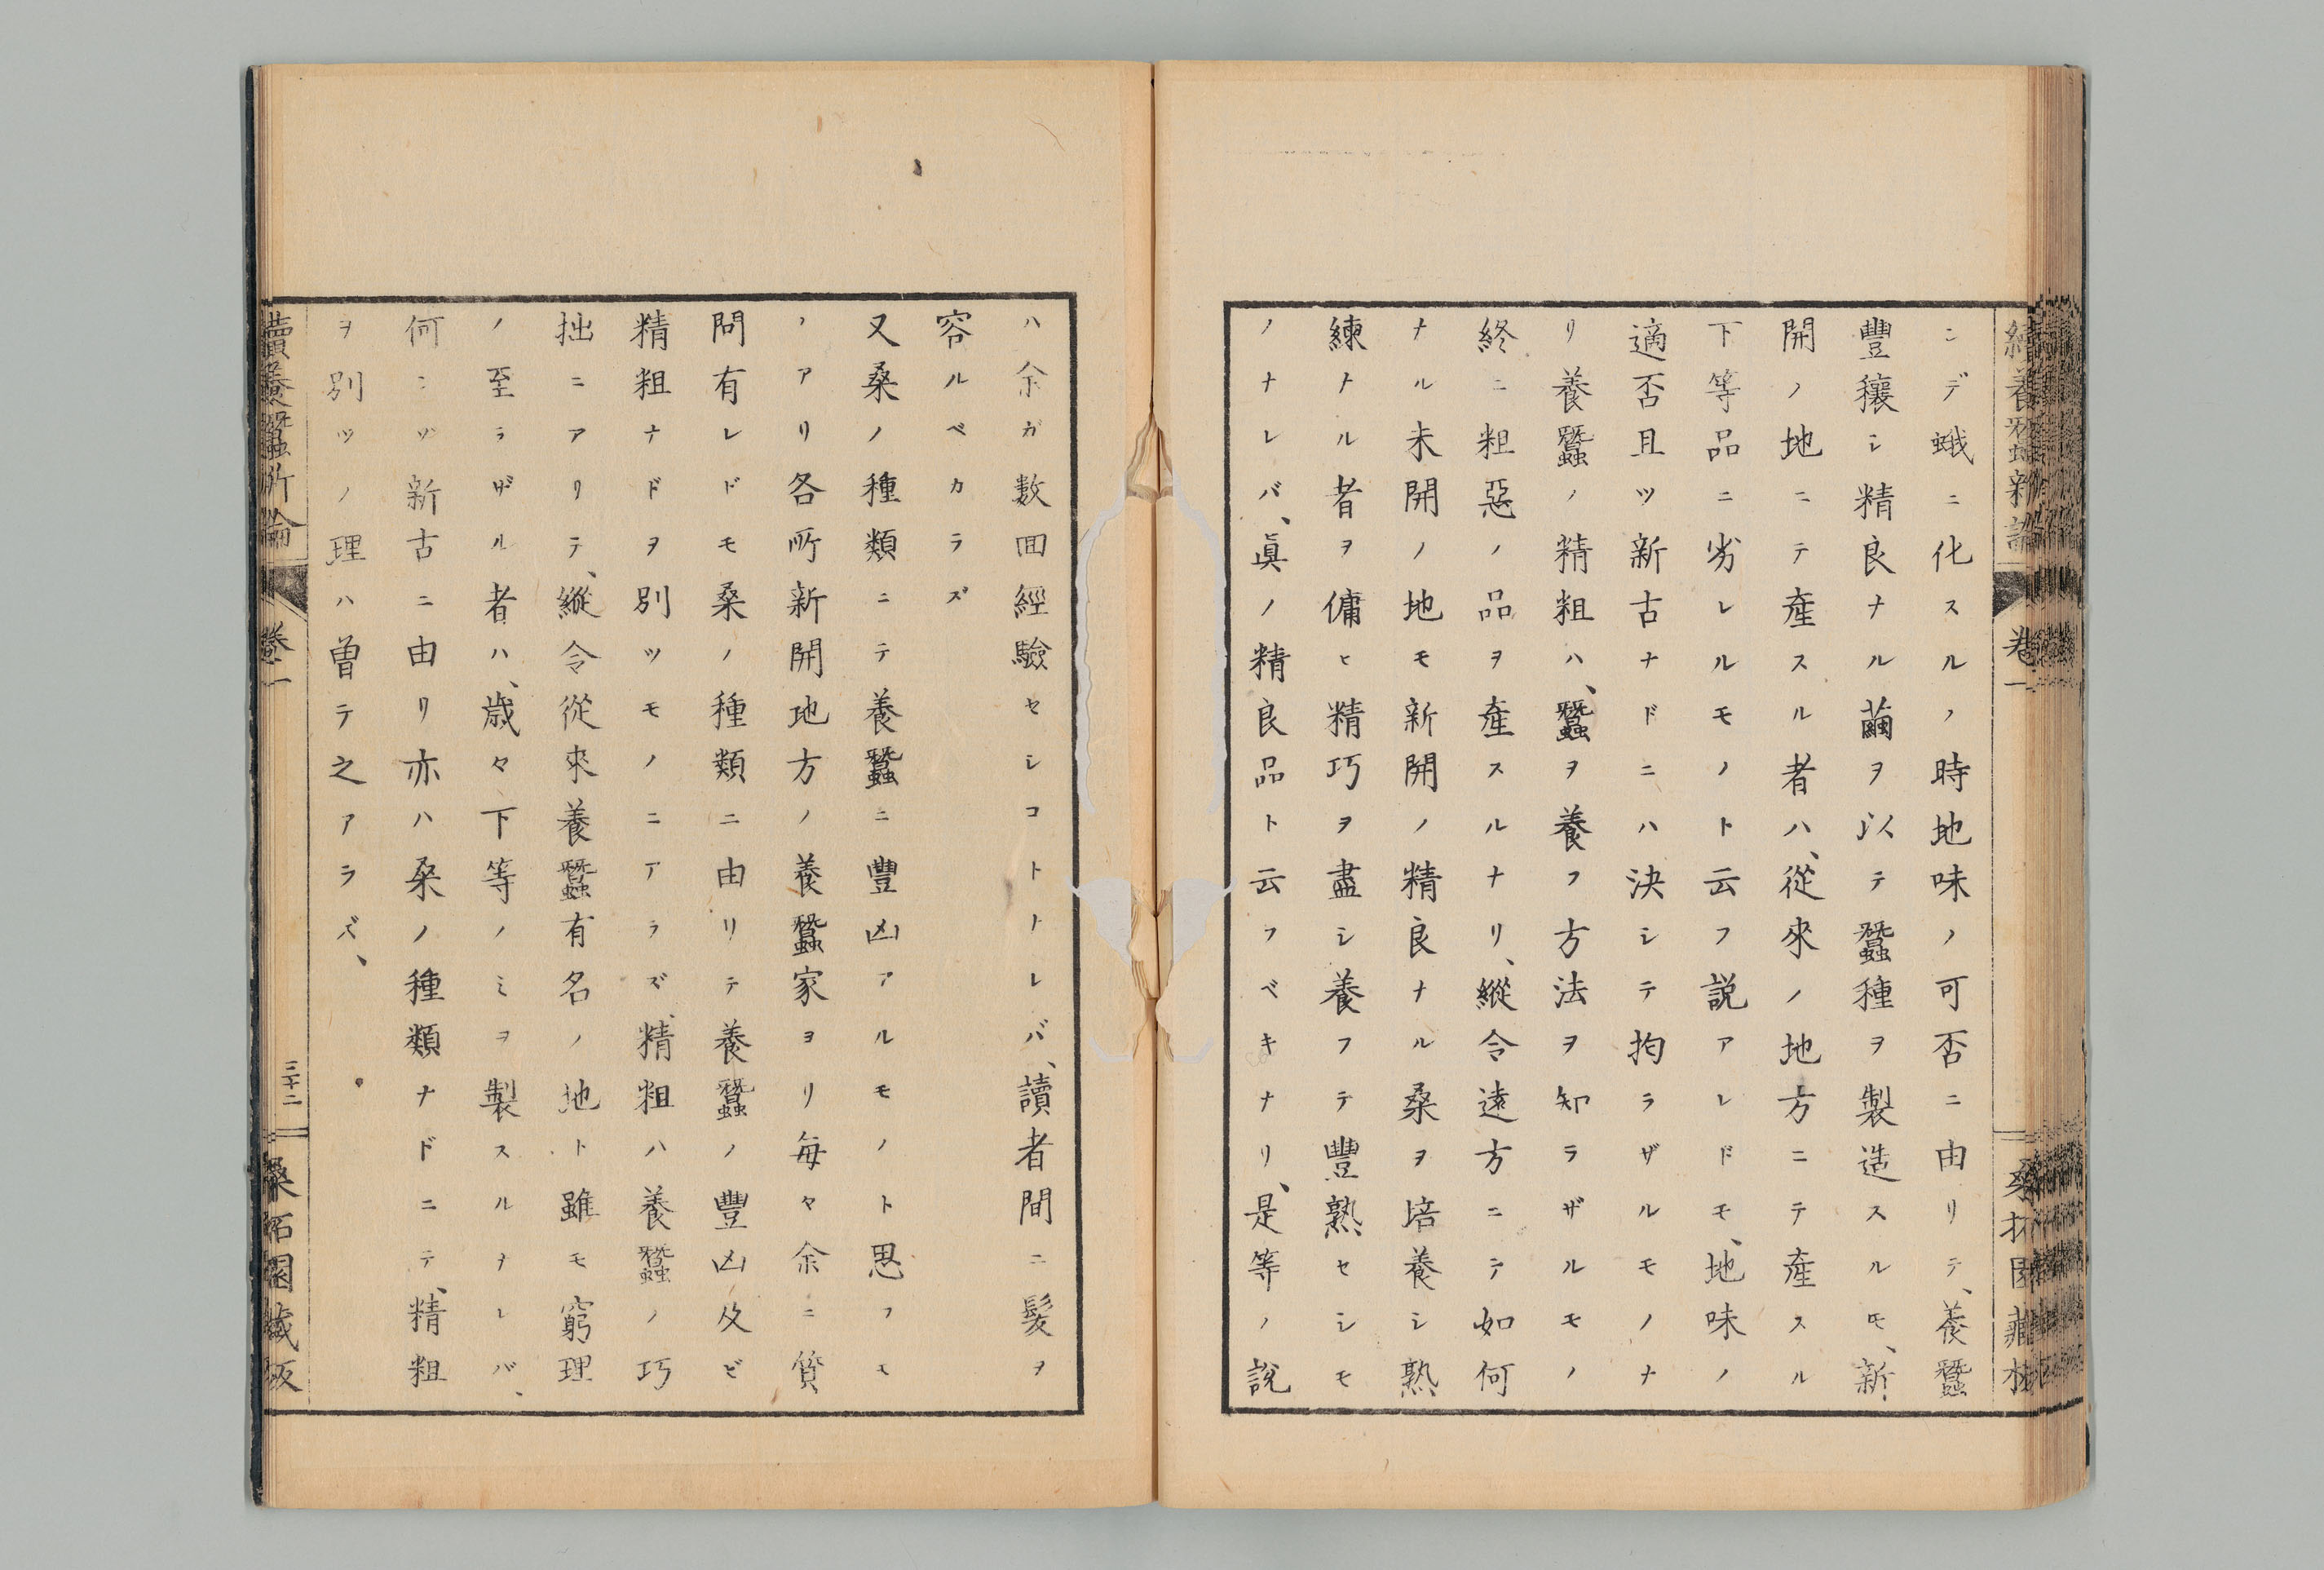 續養蠶新論
卷一
桑柘園藏板
ニデ蛾ニ化スルノ時地味ノ可否ニ由リテ、養蠶
豐穰シ精良ナル繭ヲ以テ蠶種ヲ製造スルモ、新
開ノ地ニテ産スル者ハ、從來ノ地方ニテ産スル
下等品ニ劣レルモノト云フ説アレドモ、地味ノ
適否且ツ新古ナドニハ決シテ拘ラザルモノナ
リ養蠶ノ精粗ハ、蠶ヲ養フ方法ヲ知ラザルモノ
終ニ粗惡ノ品ヲ産スルナリ、縱令遠方ニテ如何
ナル未開ノ地モ新開ノ精良ナル桑ヲ培養シ熟
練ナル者ヲ傭ヒ精巧ヲ盡シ養フテ豐熟セシモ
ノナレバ、眞ノ精良品ト云フベキナリ、是等ノ説
ハ余ガ數回經驗セシコトナレバ、讀者間ニ髮ヲ
容ルベカラズ
又桑ノ種類ニテ養蠶ニ豐凶アルモノト思フモ
ノアリ各所新開地方ノ養蠶家ヨリ毎々余ニ質
問有レドモ桑ノ種類ニ由リテ養蠶ノ豐凶及ビ
精粗ナドヲ別ツモノニアラズ、精粗ハ養蠶ノ巧
拙ニアリテ、縱令從來養蠶有名ノ地ト雖モ窮理
ノ至ラザル者ハ、歳々下等ノミヲ製スルナレバ、
何ニゾ新古ニ由リ亦ハ桑ノ種類ナドニテ、精粗
ヲ別ツノ理ハ曽テ之アラズ、
續養蠶新論
卷一
三十二
桑柘園藏板